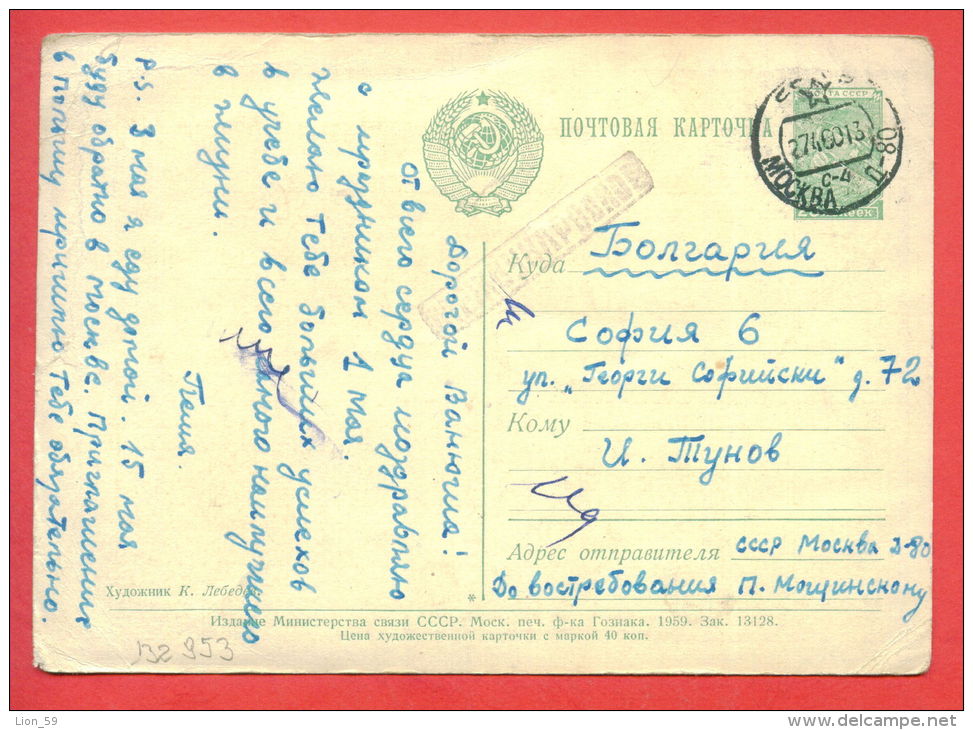 ПОЧТОВАЯ КАРТОЧКА
ПОЧТА СССР
27460 13
с-4
МОСКВА
Куда Болгария
София 6
ул. „Георги Софийски" д. 72
Кому
И. Тунов
Адрес отправителя СССР Москва Д-80
До востребования П. Мощинскому
Дорогой Ванюша!
От всего сердца поздравляю
с праздником 1 мая.
Желаю тебе больших успехов
в учебе и всего самого наилучшего
в жизни.
Петя.
P.S. 3 мая я еду домой. 15 мая
буду обратно в Москве. Приглашения
в Польшу пришлю тебе обязательно.
Художник К. Лебедев
*
Издание Министерства связи СССР. Моск. печ. ф-ка Гознака. 1959. Зак. 13128.
Цена художественной карточки с маркой 40 коп.
132953
Lion_59
delcampe.net